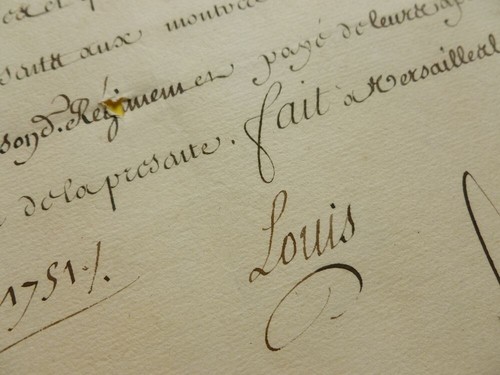 aux montre
sond. Régiment et payé de leurs ap
de la presente. fait à Versailles l
1751./.
Louis